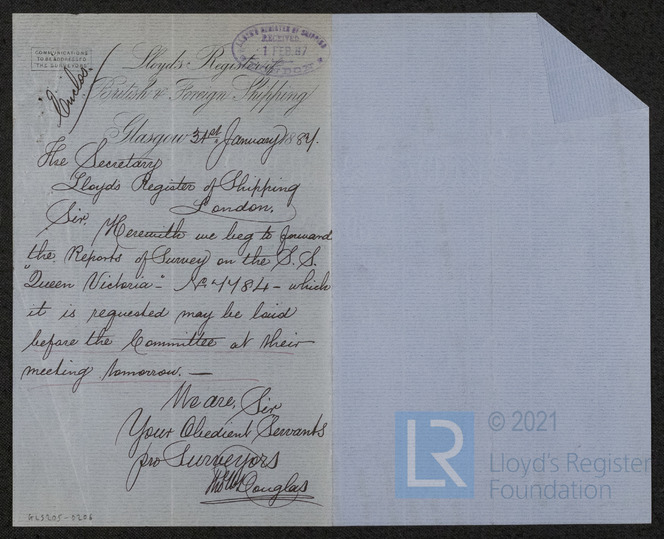 COMMUNICATIONS
TO BE ADDRESSED
THE SURVEYORS
LLOYD'S REGISTER OF SHIPPING
RECEIVED
1 FEB 87
Lloyds Register of
British & Foreign Shipping
Glasgow 31st January 1887.
The Secretary
Lloyds Register of Shipping
London.
Sir.
Herewith we beg to forward
the Reports of Survey on the S.S.
"Queen Victoria" - No - which
it is requested may be laid
before the Committee at their
meeting tomorrow. —
We are, Sir
Your Obedient Servants
pro Surveyors
Douglas
GLS205-0206
© 2021
LR
Lloyd's Register
Foundation